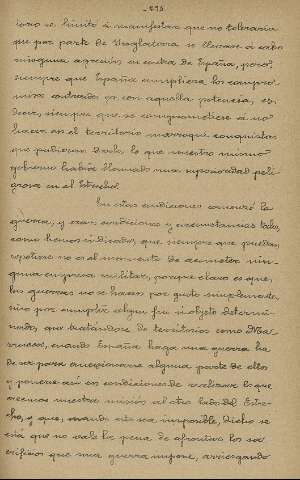 - 295 -
se limitó á manifestar que no toleraría
que por parte de Inglaterra se llevase á cabo
ninguna agresión en contra de España, pero,
siempre que España cumpliera los compro-
misos contraidos con aquella potencia, es
decir, siempre que se comprometiese á no
hacer en el territorio marroquí conquistas
que pudieran darle lo que nuestro mismo
gobierno había llamado una superioridad peli-
grosa en el Estrecho.
En estas condiciones comenzó la
guerra, y esas condiciones y circunstancias tales,
como hemos indicado, que siempre que puedan
repetirse no es el momento de acometer nin-
guna empresa militar, porque claro es que,
las guerras no se hacen por gusto simplemente
sino por cumplir algun fin ú objeto determi-
nado, que tratándose de territorios como Ma-
rruecos, cuando España haga una guerra ha
de ser para anexionarse alguna parte de ellos
y ponerse así en condiciones de realizar lo que
creemos nuestra misión al otro lado del Estre-
cho, y que, cuando esto sea imposible, dicho se
está que no vale la pena de afrontar los sa-
crificios que una guerra impone, arriesgando